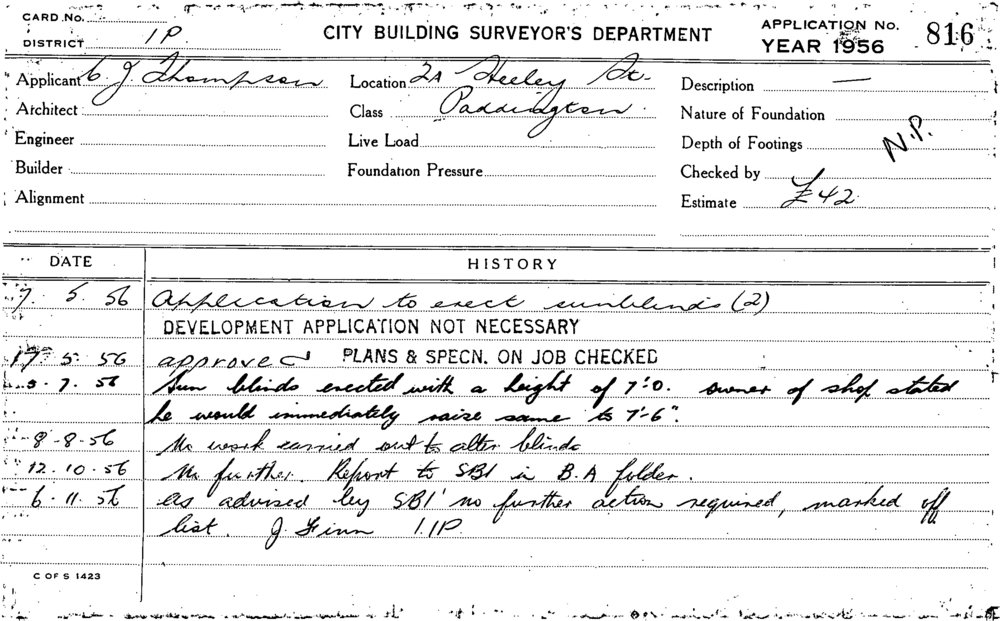 CARD No.
DISTRICT 1P.
CITY BUILDING SURVEYOR'S DEPARTMENT
APPLICATION No. 816
YEAR 1956
Applicant C. J. Thompson
Location 2A Heeley St.
Description —
Architect
Class Paddington.
Nature of Foundation
Engineer
Live Load
Depth of Footings
N.P.
Builder
Foundation Pressure
Checked by
Alignment
Estimate £42.
DATE HISTORY
7. 5. 56 Application to erect sunblinds (2)
DEVELOPMENT APPLICATION NOT NECESSARY
17 5 56 approved PLANS & SPECN. ON JOB CHECKED
5. 7. 56 Sun blinds erected with a height of 7'.0. owner of shop stated
he would immediately raise same to 7'-6".
8-8-56 No work carried out to alter blinds
12.10.56 No further. Report to SBI in B.A folder.
6.11.56 As advised by SBI no further action required, marked off
list. J Finn 1.1P.
C OF S 1423